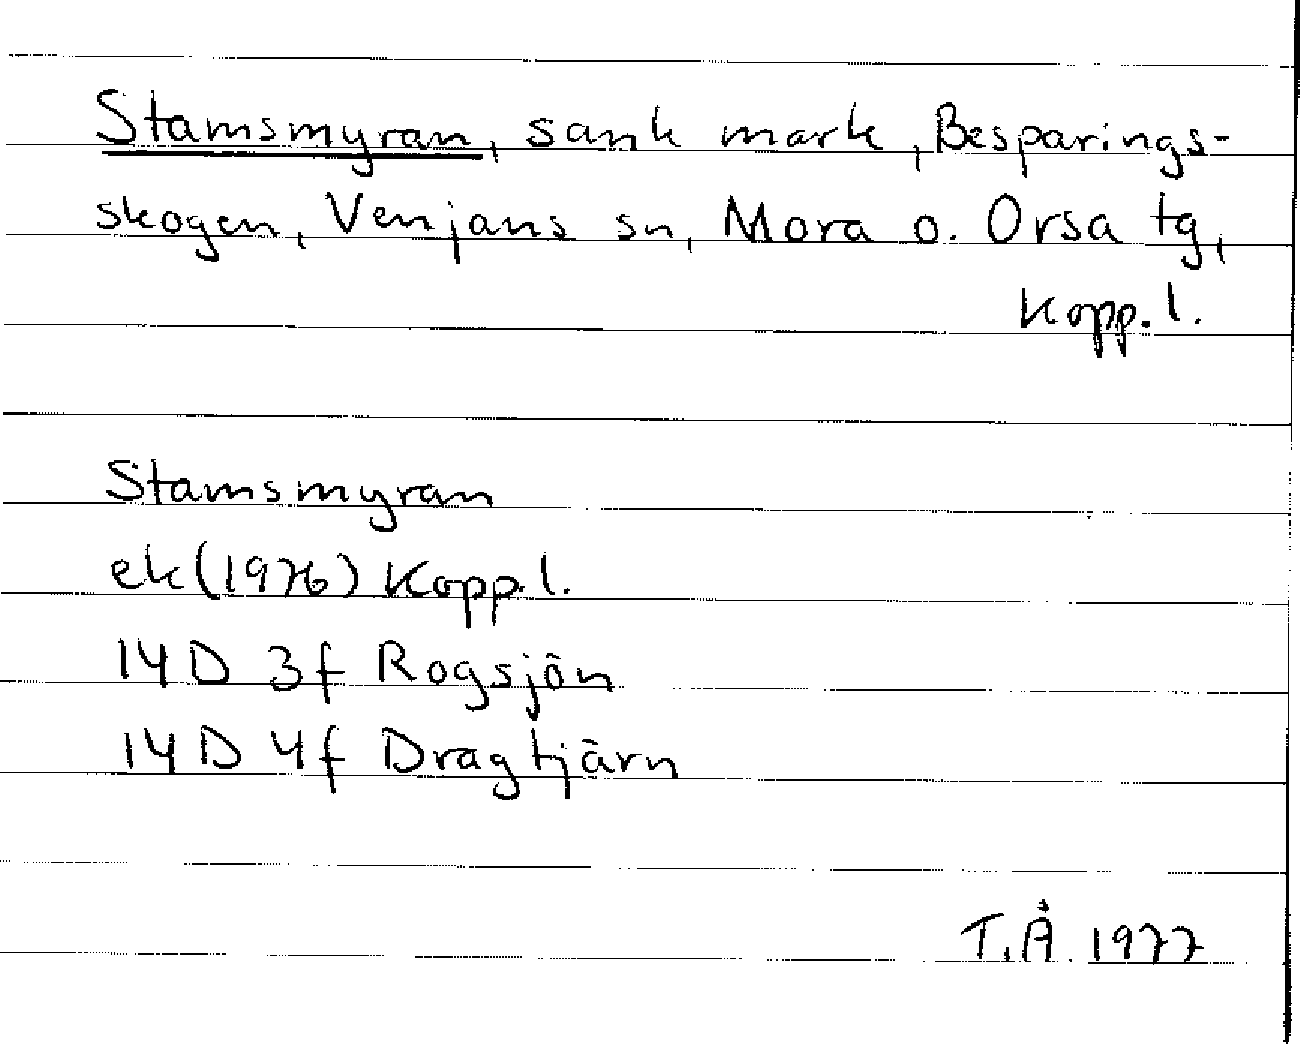 Stamsmyran, sank mark, Besparings-
skogen, Venjans sn, Mora o. Orsa tg,
Kopp. l.
Stamsmyran
ek (1976) Kopp. l.
14 D 3f Rogsjön
14 D 4f Dragtjärn
T.Å. 1977